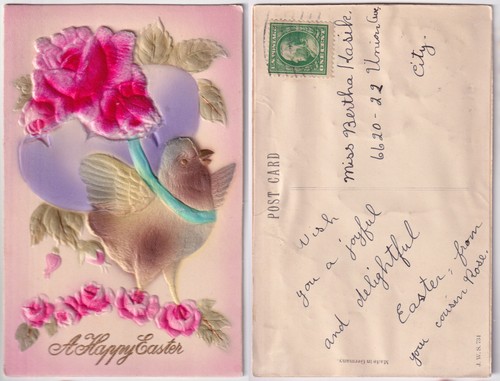 A Happy Easter
POST CARD
Miss Bertha Kasik.
6620-22 Union Ave,
City.
Wish
you a joyful
and delightful
Easter, from
you cousin Rose.
Made in Germany.
J. W. S. 731